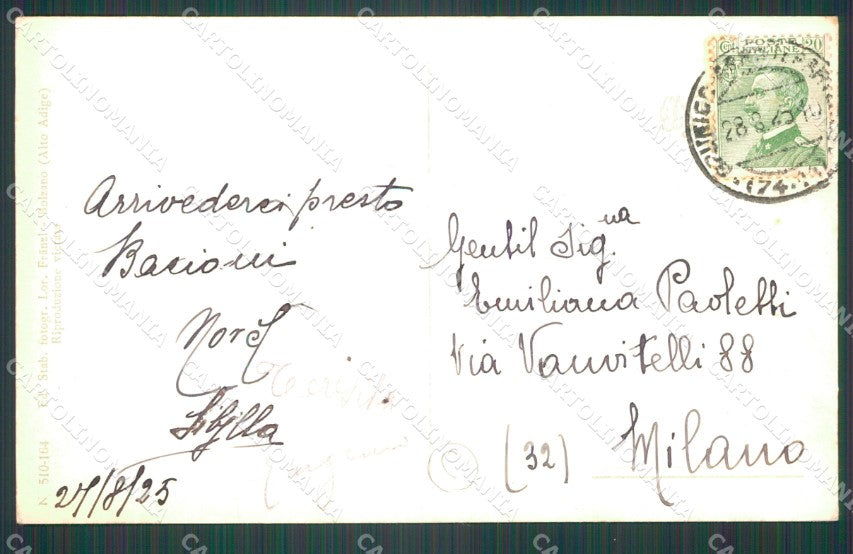 Arrivederci presto
Bacioni
Sibylla
27/8/25
N. 510-164 Ed. Stab. fotogr. Lor. Fränzl, Bolzano (Alto Adige)
Riproduzione vietata
POSTE
ITALIANE
20
28.8.25
(74-11)
Gentil Sig.na
Emiliana Paoletti
Via Vanvitelli 88
(32) Milano
CARTOLINOMANIA